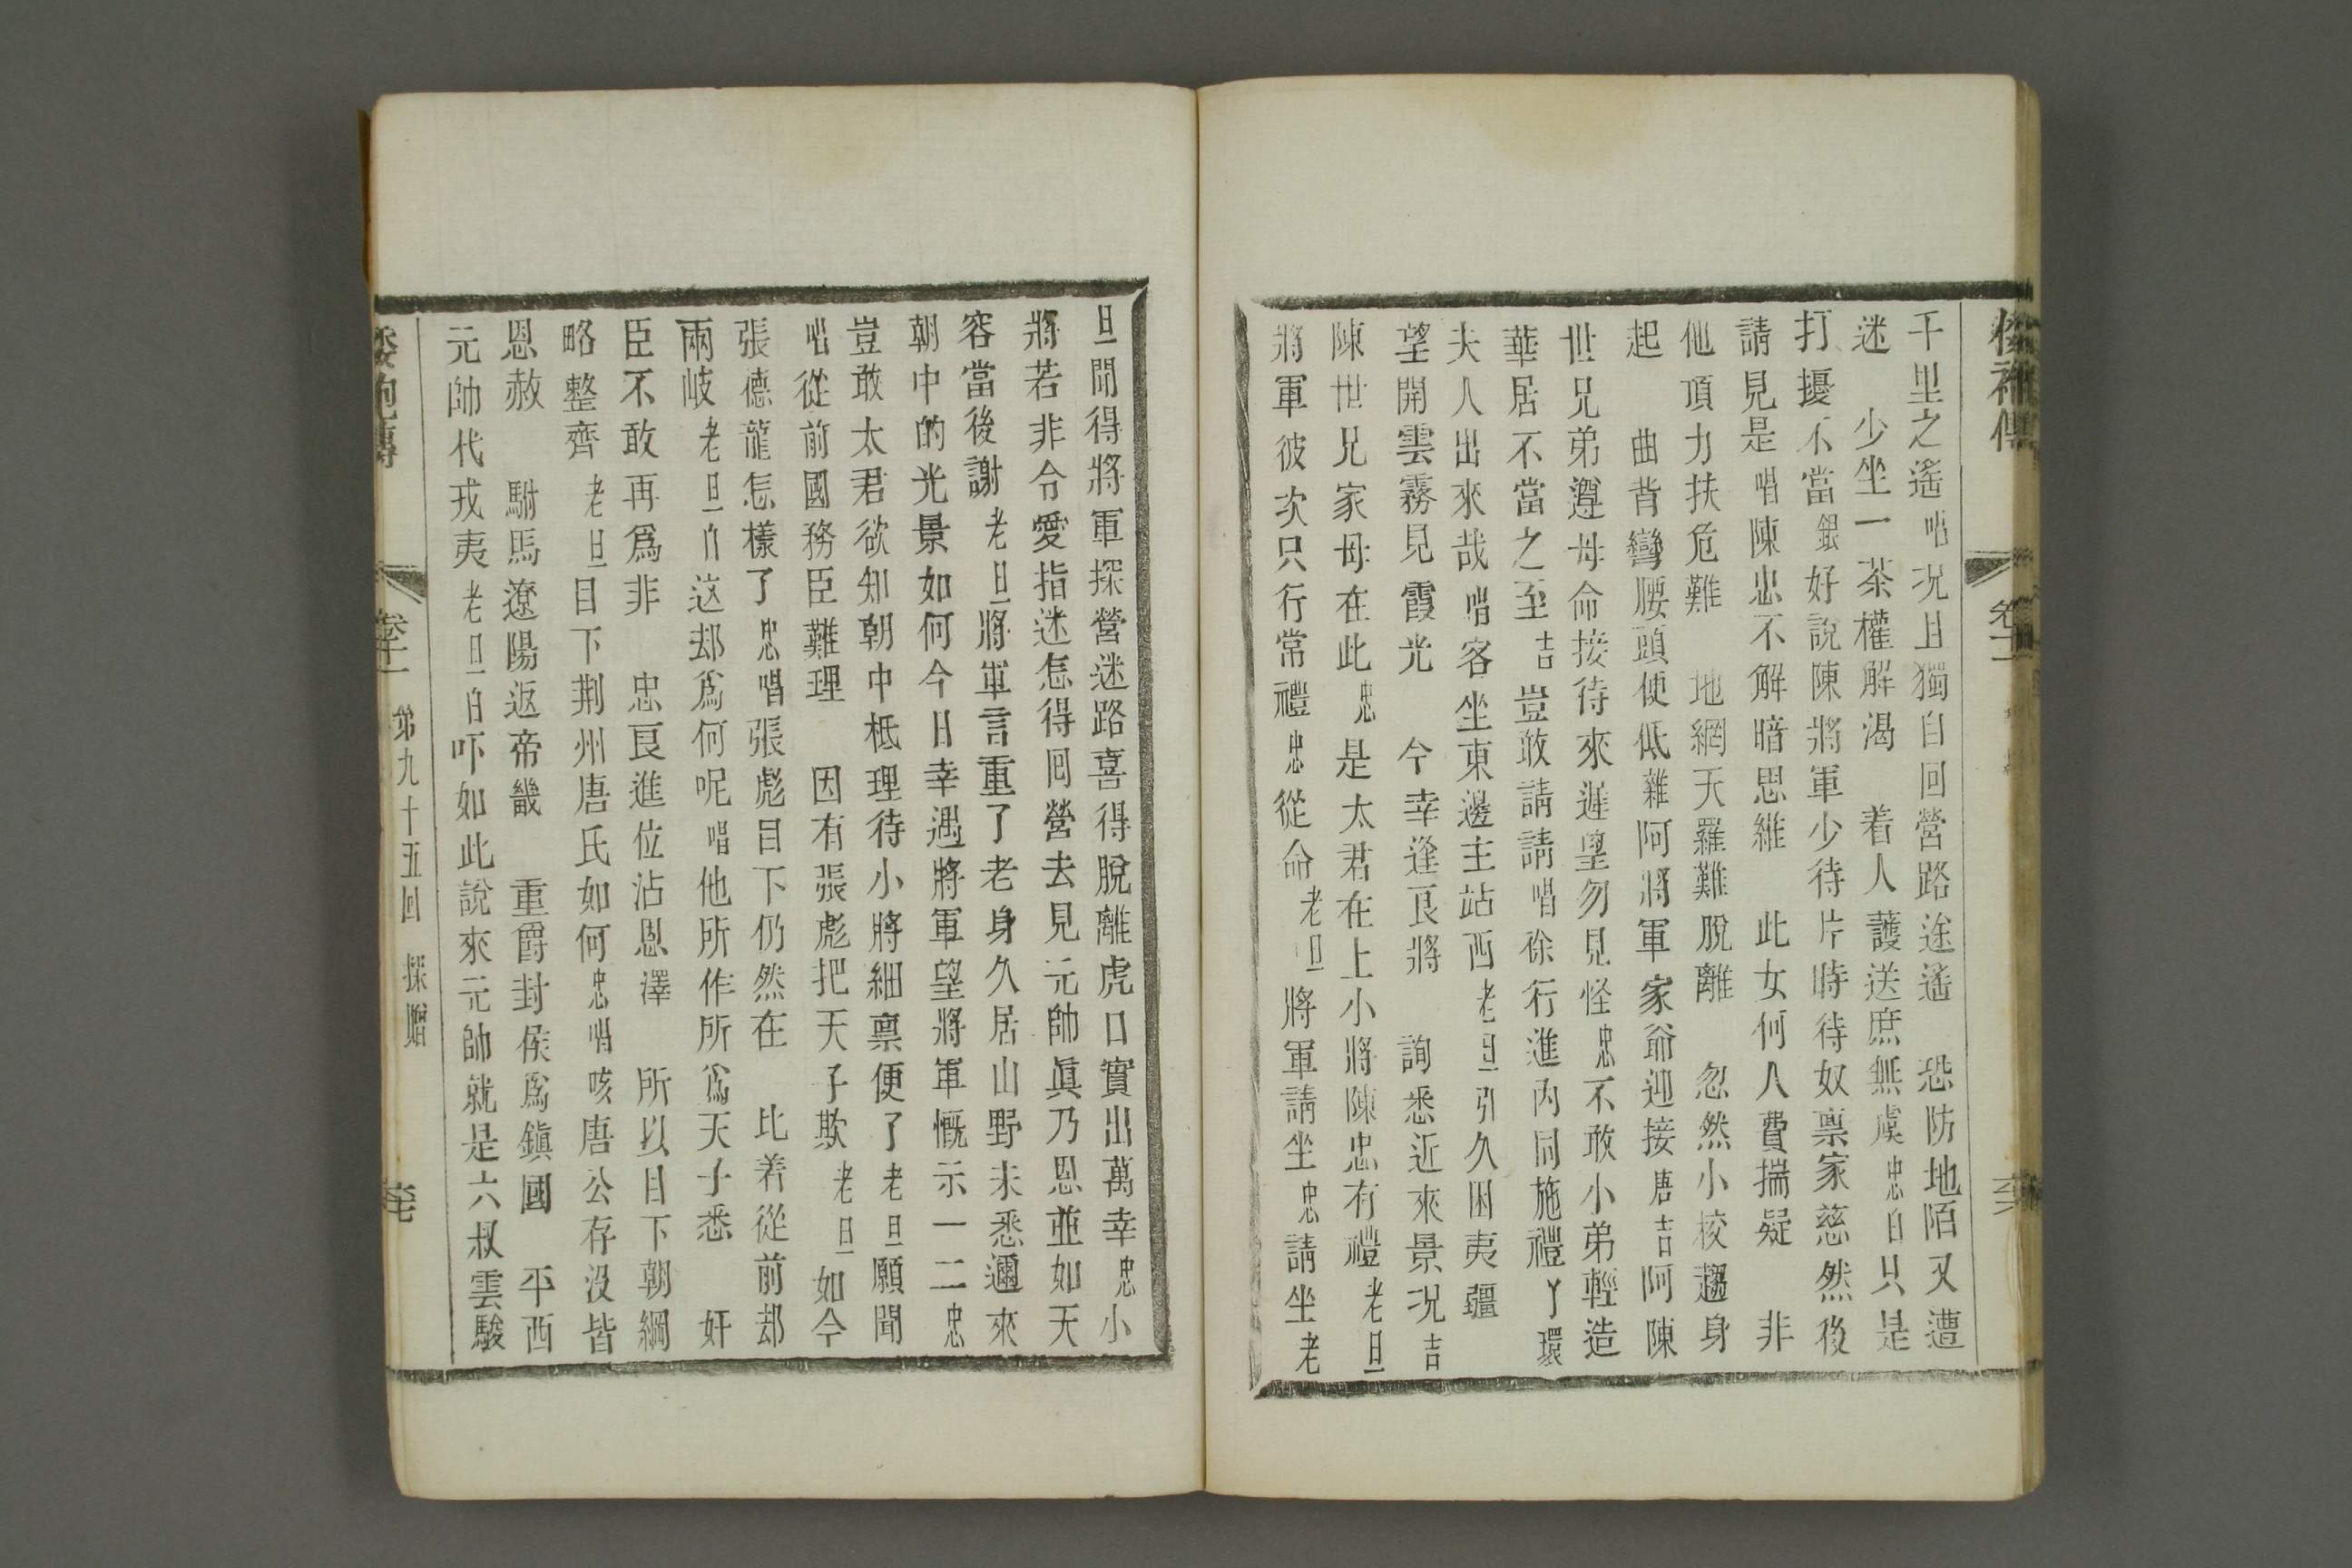 卷十一
千里之遙唱况且獨自回營路途遙　恐防地陌又遭
迷　少坐一茶權解渴　着人護送庶無虞忠白只是
打擾不當銀好說陳將軍少待片時待奴禀家慈然後
請見是唱陳忠不解暗思維　此女何人費揣疑　非
他頂力扶危難　地網天羅難脫離　忽然小校趨身
起　曲背彎腰頭便低雜阿將軍家爺迎接唐吉阿陳
世兄弟遵母命接待來遲望勿見怪忠不敢小弟輕造
華居不當之至吉豈敢請請唱徐行進內同施禮丫環
夫人出來哉唱客坐東邊主站西老旦引久困夷疆
望開雲霧見霞光　今幸逢良將　詢悉近來景况吉
陳世兄家母在此忠是太君在上小將陳忠有禮老旦
將軍彼次只行常禮忠從命老旦將軍請坐忠請坐老
旦聞得將軍探營迷路喜得脫離虎口實出萬幸忠小
將若非令愛指迷怎得囘營去見元帥眞乃恩並如天
容當後謝老旦將軍言重了老身久居山野未悉邇來
朝中的光景如何今日幸遇將軍望將軍慨示一二忠
豈敢太君欲知朝中柢理待小將細禀便了老旦願聞
唱從前國務臣難理　因有張彪把天子欺老旦如今
張德龍怎樣了忠唱張彪目下仍然在　比着從前却
兩岐老旦白这却爲何呢唱他所作所爲天子悉　奸
臣不敢再爲非　忠良進位沾恩澤　所以目下朝綱
略整齊老旦目下荆州唐氏如何忠唱咳唐公存没皆
恩赦　駙馬遼陽返帝畿　重爵封侯爲鎮國　平西
元帥代戎夷老旦白吓如此說來元帥就是六叔雲駿
卷十一　第九十五回　探贈